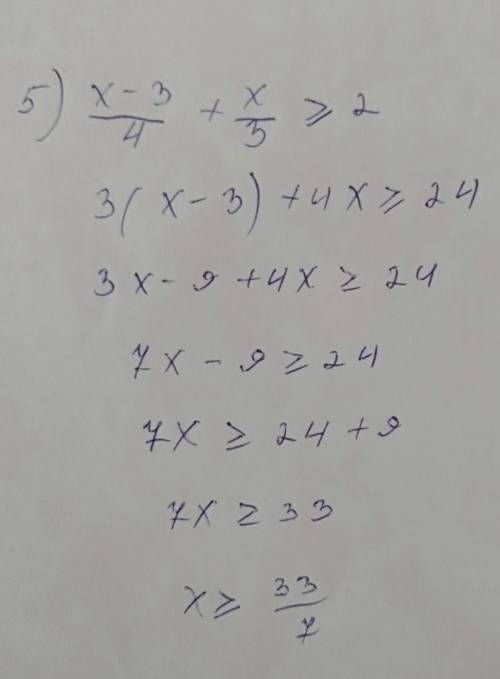 5) (x-3)/4 + x/3 ≥ 2
3(x-3)+4x ≥ 24
3x-9+4x ≥ 24
7x-9 ≥ 24
7x ≥ 24+9
7x ≥ 33
x ≥ 33/7